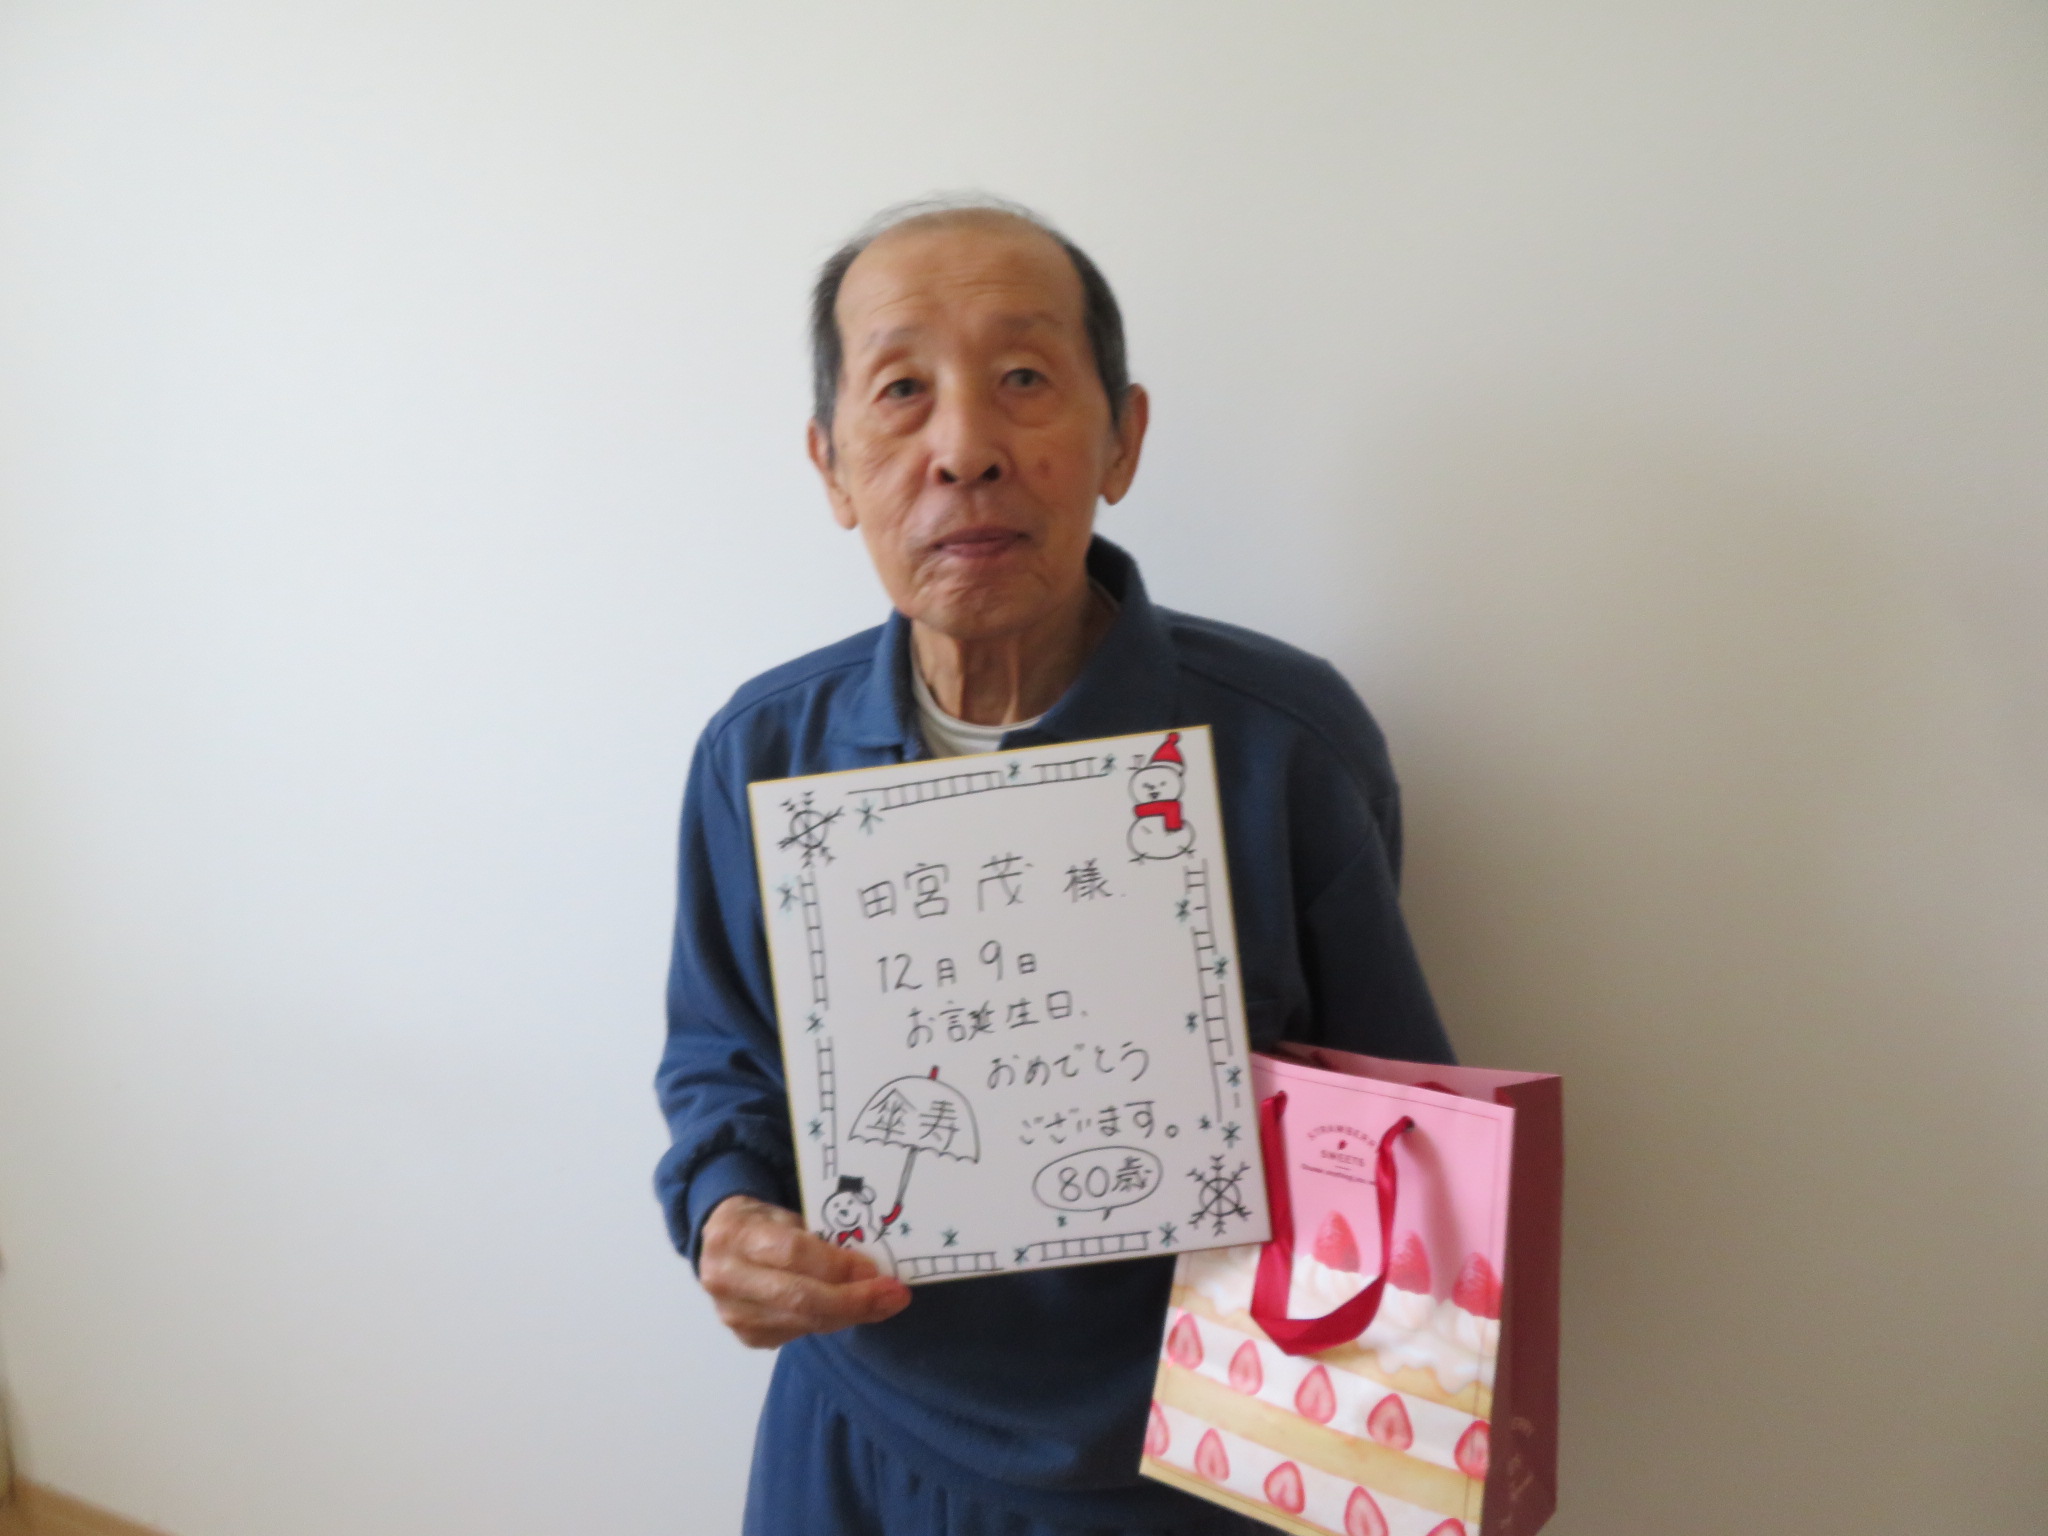 田宮 茂 様
12月9日
お誕生日、
おめでとう
ございます。
傘寿
80歳
SWEETS